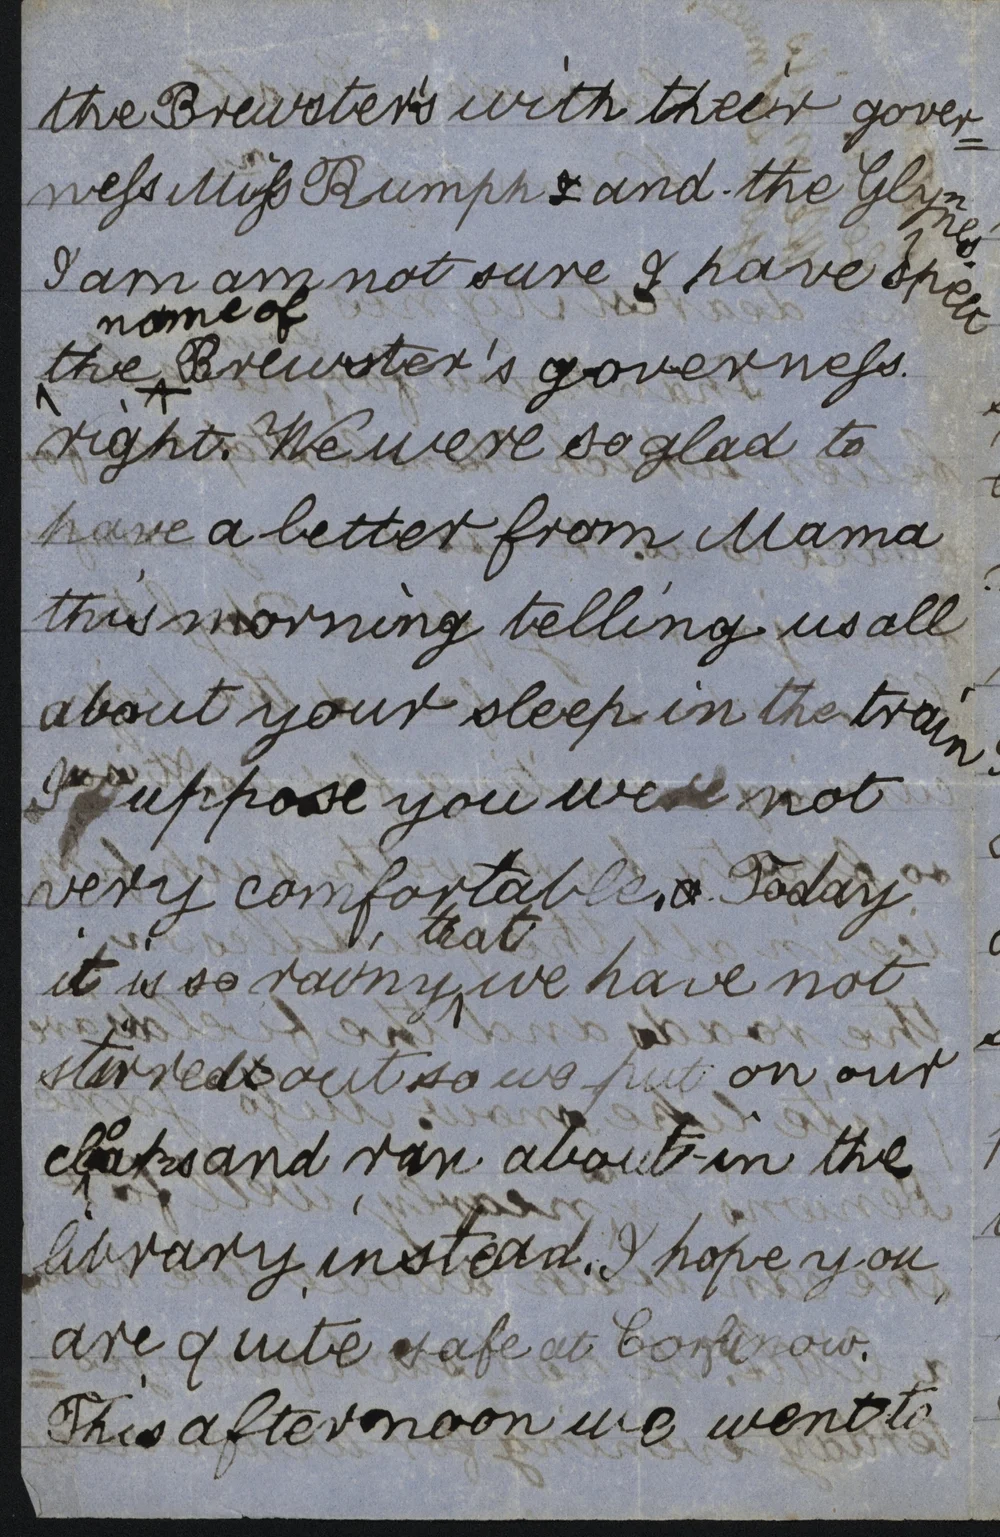 the Brewster's with their gover=
ness Miss Rumph & and the Glynnes.
I am am not sure I have spelt
name of
the Brewster's governess.
right. We were so glad to
have a letter from Mama
this morning telling us all
about your sleep in the train
I suppose you were not
very comfortable. & Today
that
it is so rainy, we have not
stirred out so we put on our
cloaks and ran about in the
library instead. I hope you
are quite safe at Corfu now.
This afternoon we went to